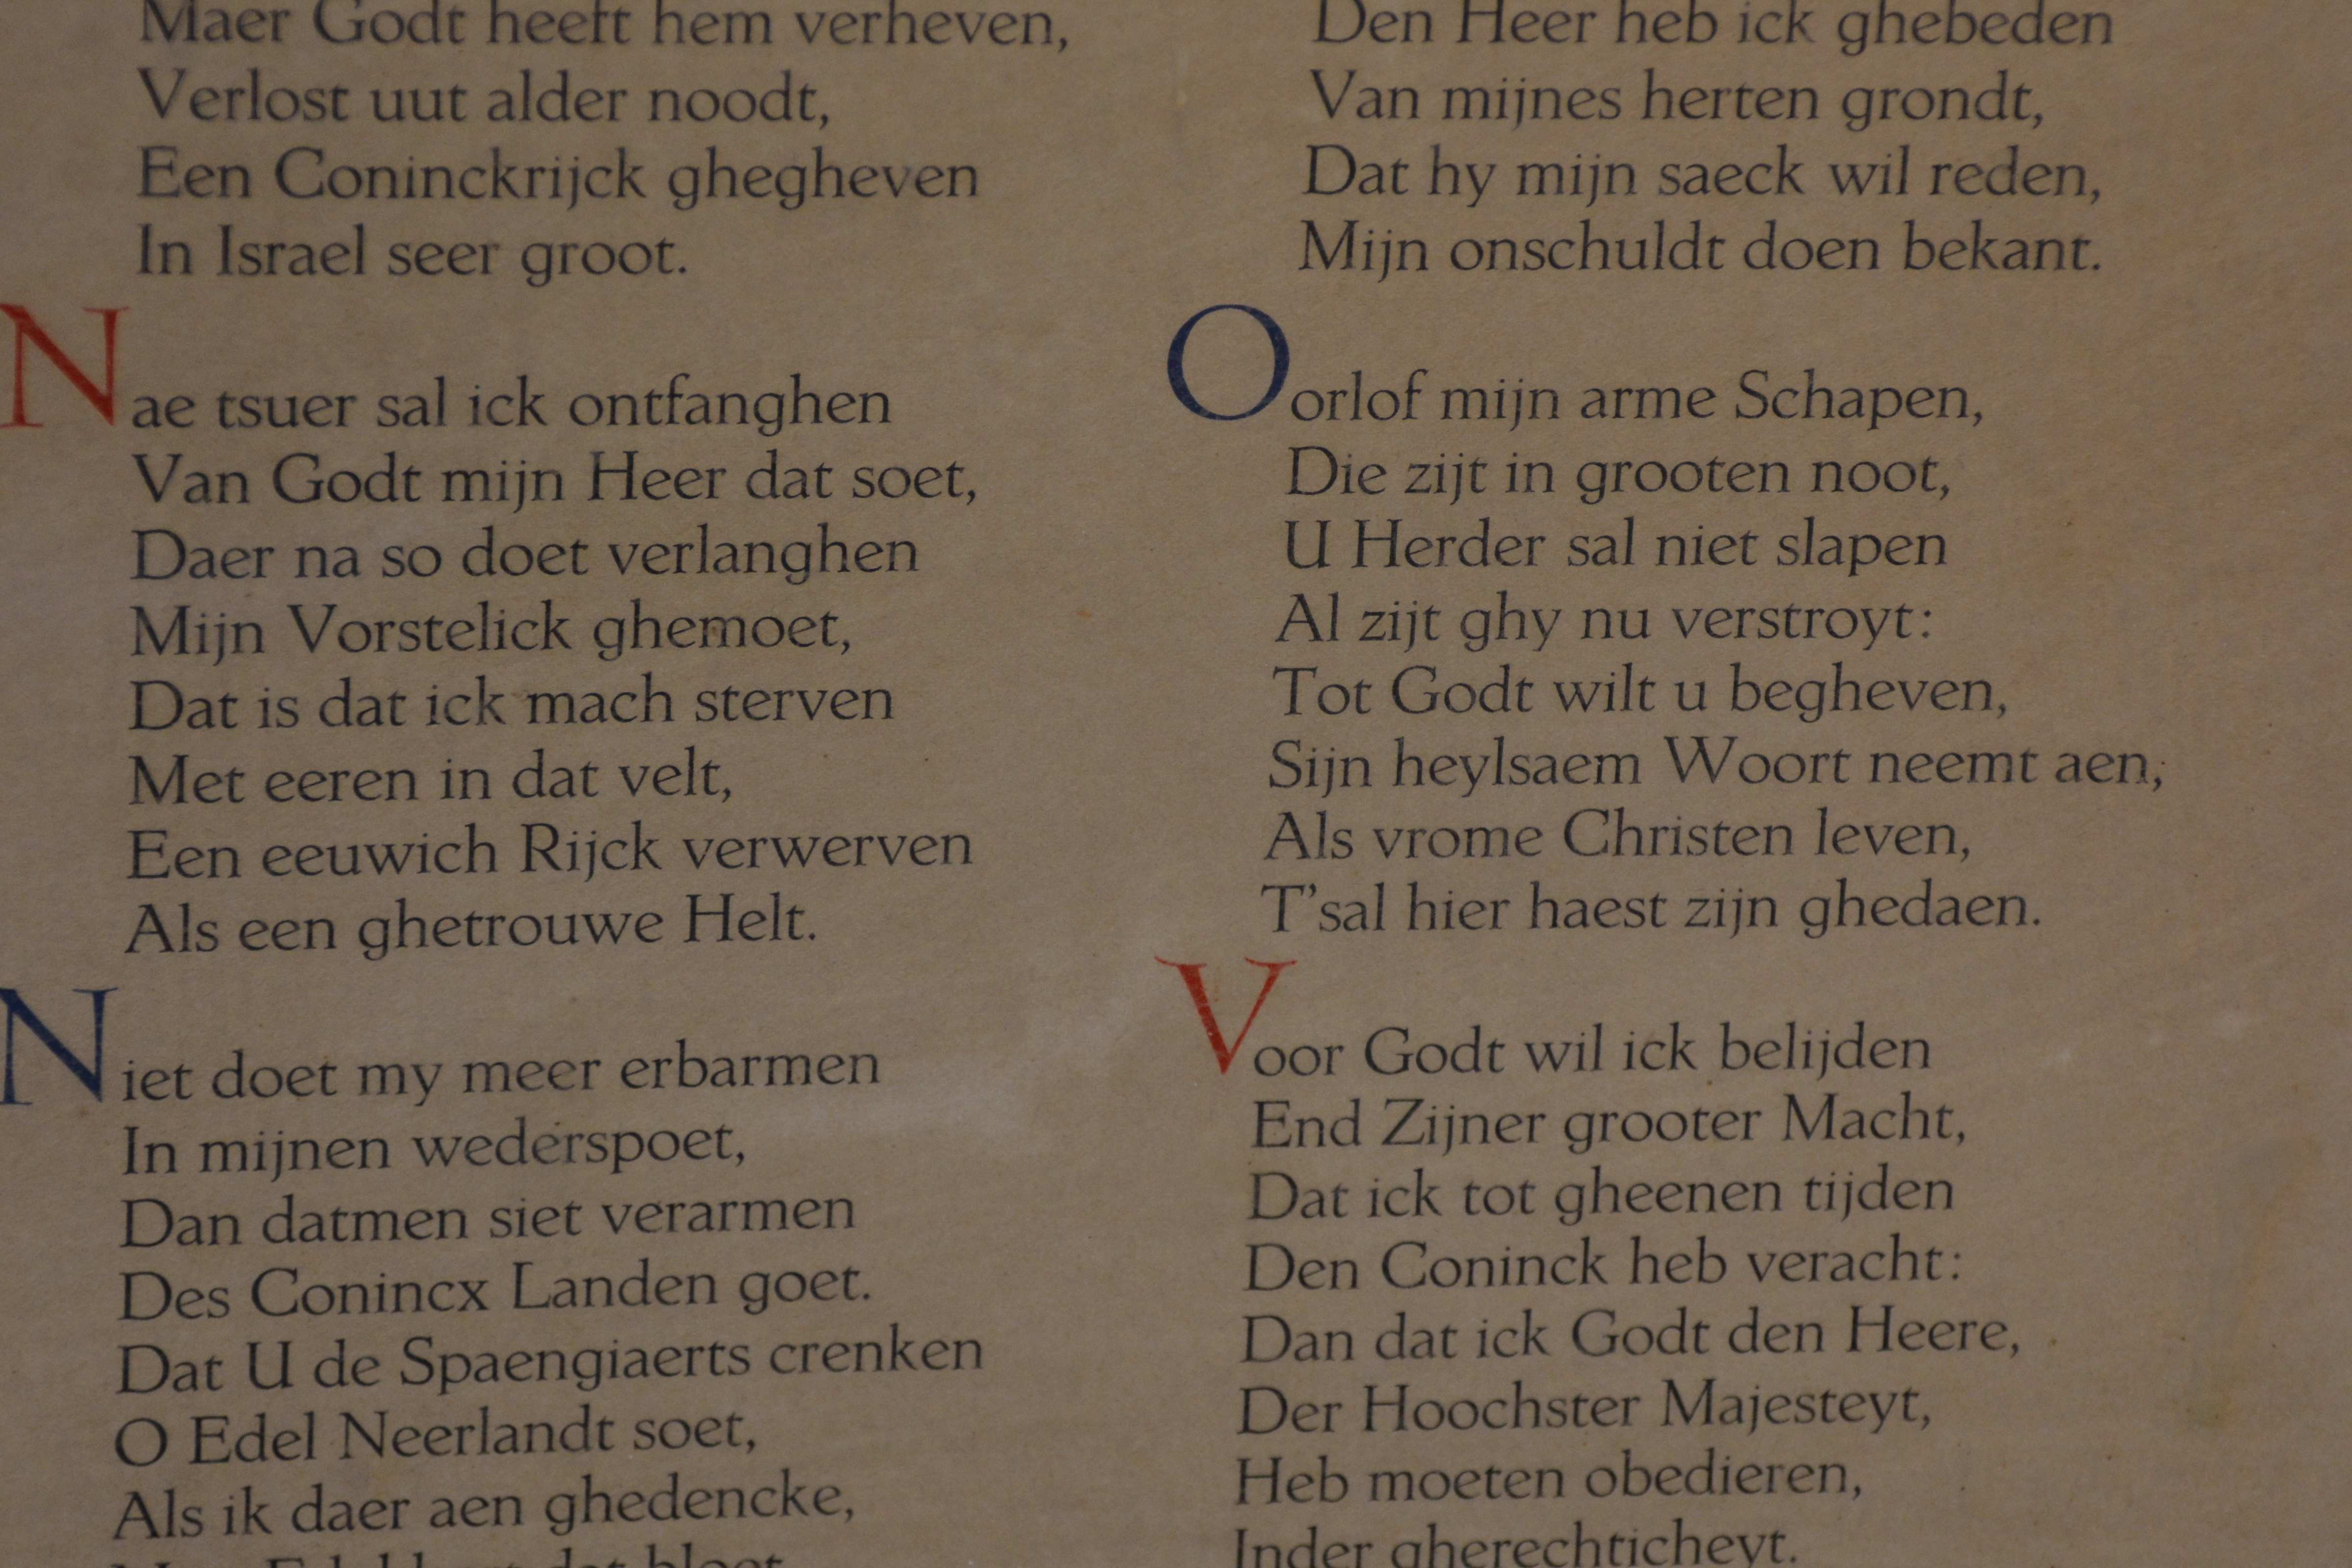 Maer Godt heeft hem verheven,
Verlost uut alder noodt,
Een Coninckrijck ghegheven
In Israel seer groot.
Nae tsuer sal ick ontfanghen
Van Godt mijn Heer dat soet,
Daer na so doet verlanghen
Mijn Vorstelick ghemoet,
Dat is dat ick mach sterven
Met eeren in dat velt,
Een eeuwich Rijck verwerven
Als een ghetrouwe Helt.
Niet doet my meer erbarmen
In mijnen wederspoet,
Dan datmen siet verarmen
Des Conincx Landen goet.
Dat U de Spaengiaerts crenken
O Edel Neerlandt soet,
Als ik daer aen ghedencke,
Edel dat bloet
Den Heer heb ick ghebeden
Van mijnes herten grondt,
Dat hy mijn saeck wil reden,
Mijn onschuldt doen bekant.
Oorlof mijn arme Schapen,
Die zijt in grooten noot,
U Herder sal niet slapen
Al zijt ghy nu verstroyt:
Tot Godt wilt u begheven,
Sijn heylsaem Woort neemt aen,
Als vrome Christen leven,
T'sal hier haest zijn ghedaen.
Voor Godt wil ick belijden
End Zijner grooter Macht,
Dat ick tot gheenen tijden
Den Coninck heb veracht:
Dan dat ick Godt den Heere,
Der Hoochster Majesteyt,
Heb moeten obedieren,
Inder gherechticheyt.